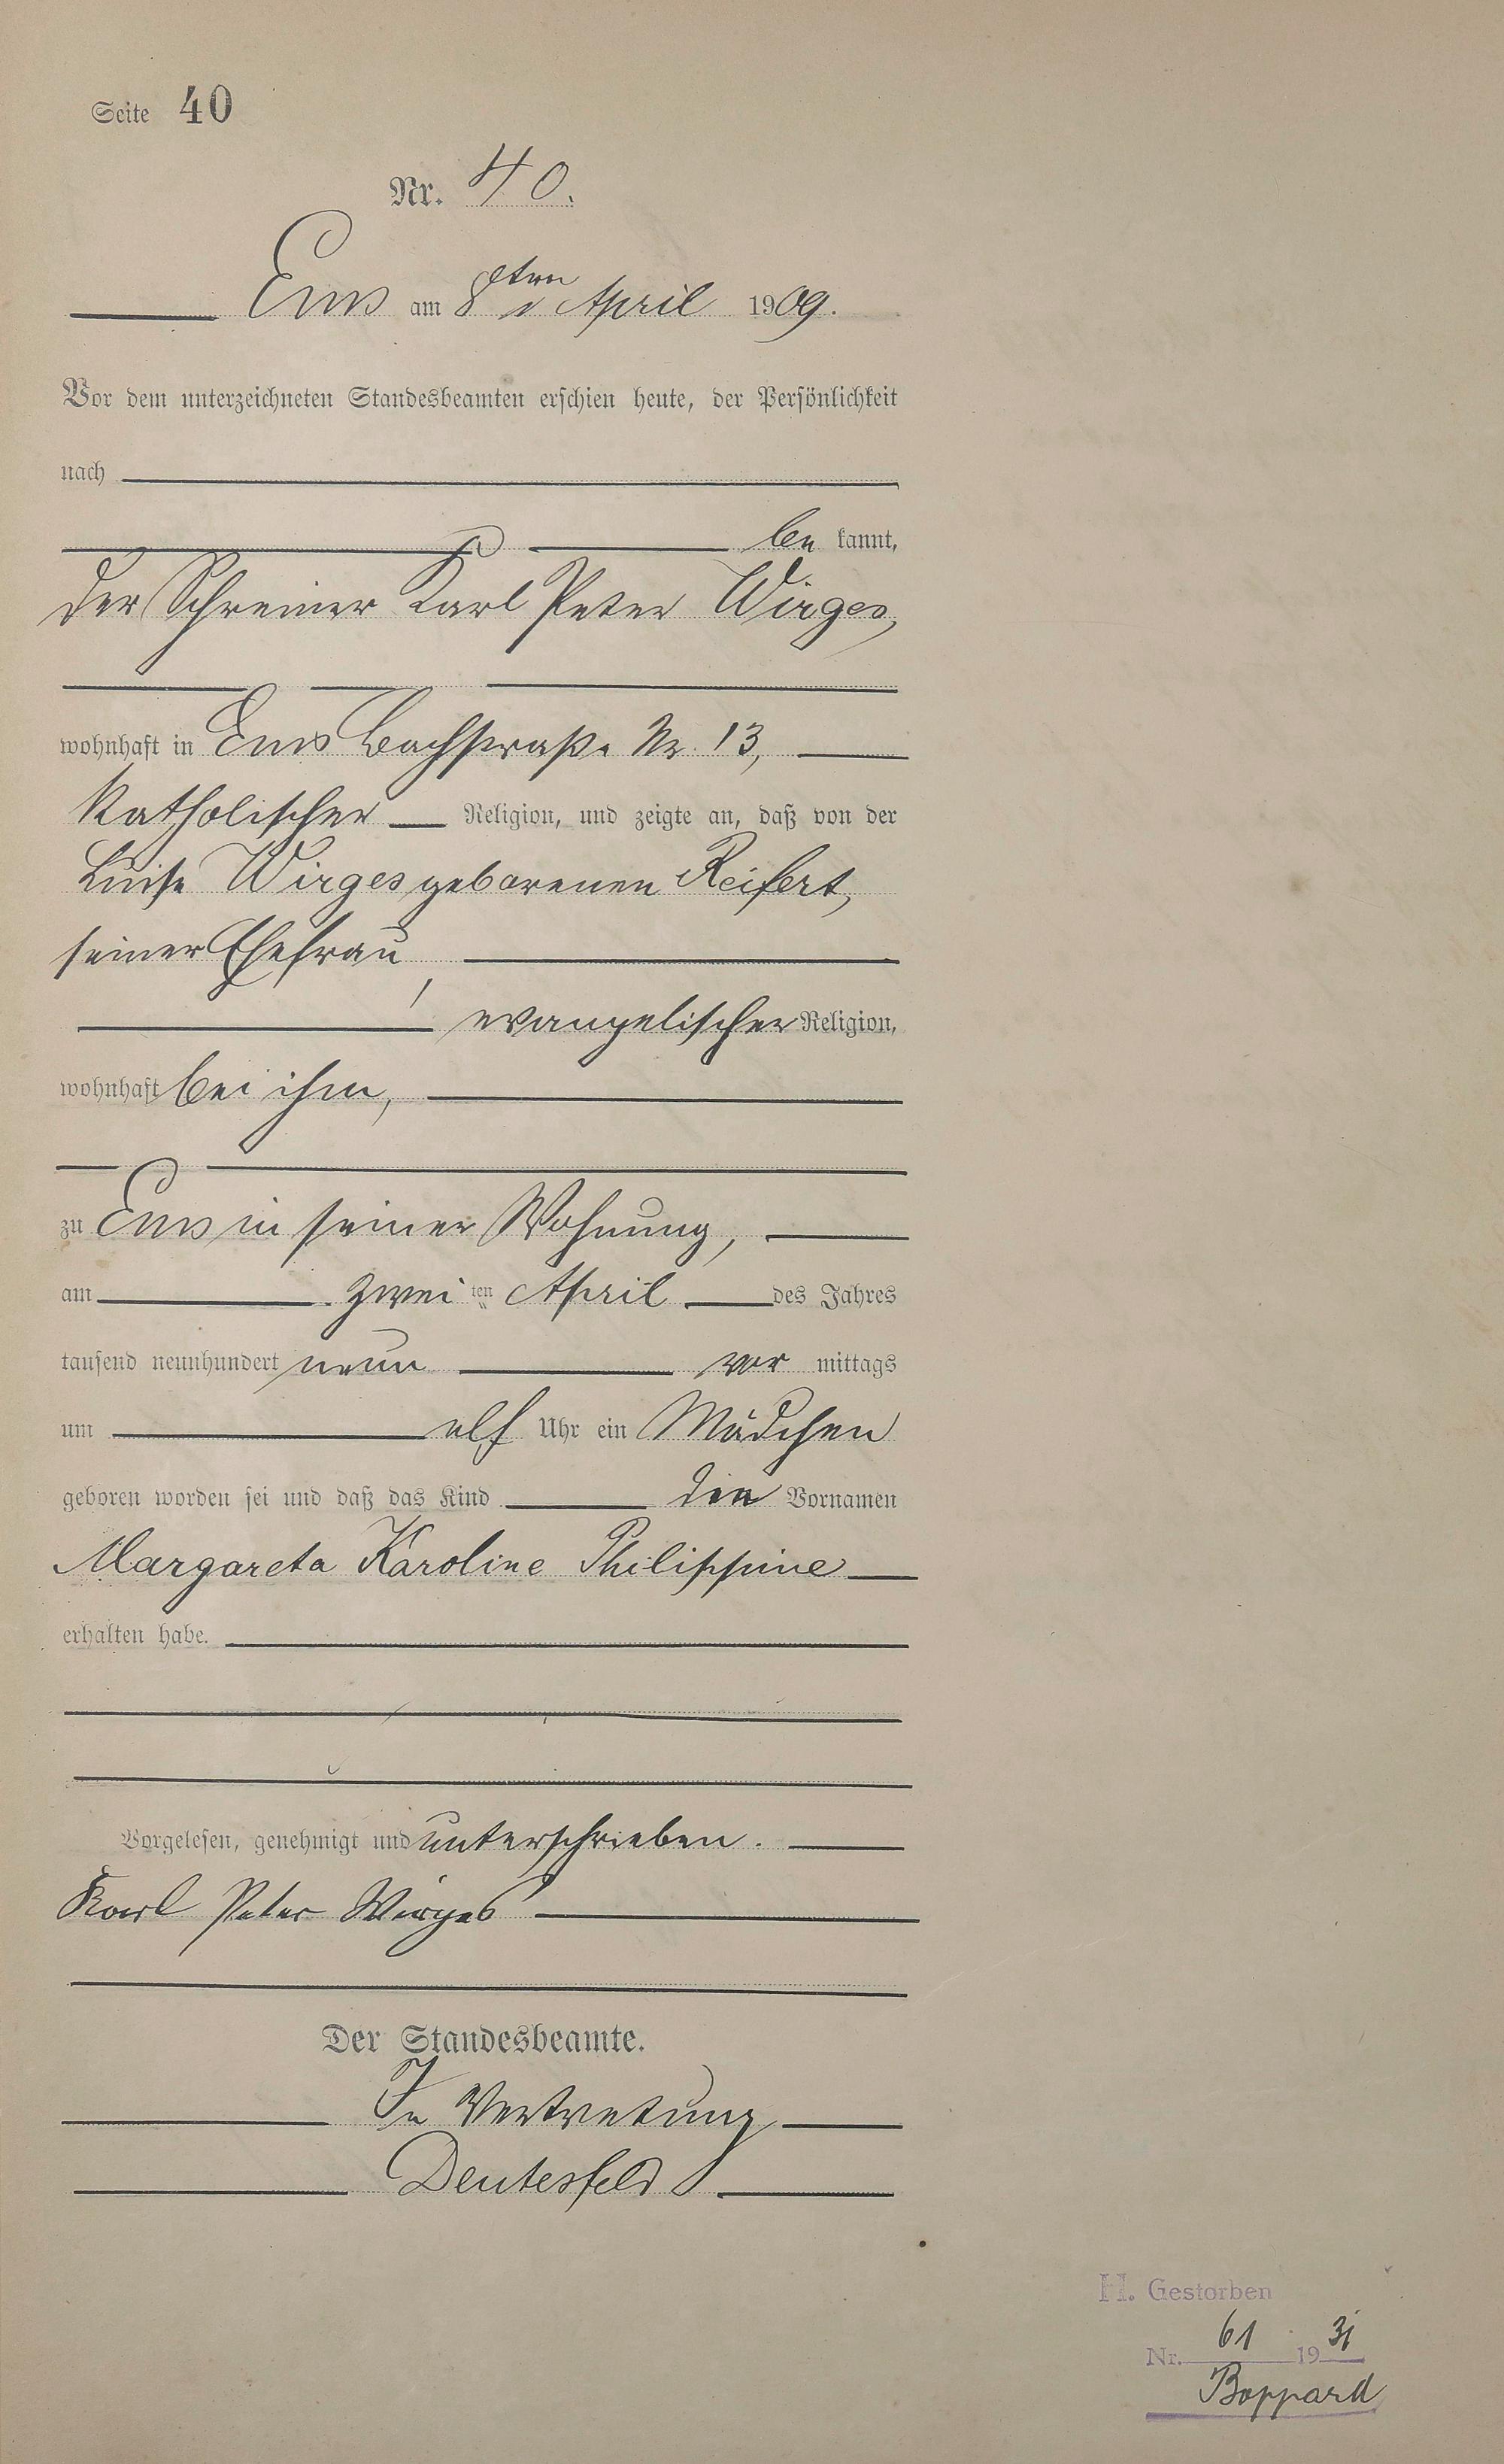 Seite 40
Nr. 40.
Ems am 8ten April 1909.
Vor dem unterzeichneten Standesbeamten erschien heute, der Persönlichkeit
nach
be kannt,
der Schreiner Karl Peter Wirges,
wohnhaft in Ems Bachstraße Nr. 13,
katholischer Religion, und zeigte an, daß von der
Luise Wirges geborenen Reifert,
seiner Ehefrau,
evangelischer Religion,
wohnhaft bei ihm,
zu Ems in seiner Wohnung,
am zwei ten April des Jahres
tausend neunhundert neun vor mittags
um elf Uhr ein Mädchen
geboren worden sei und daß das Kind die Vornamen
Margareta Karoline Philippine
erhalten habe.
Vorgelesen, genehmigt und unterschrieben.
Karl Peter Wirges
Der Standesbeamte.
In Vertretung
Deutesfeld
H. Gestorben
Nr. 61 1931
Boppard